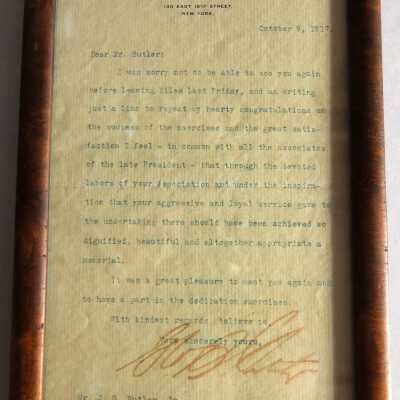 130 EAST 15TH STREET,
NEW YORK.
October 9, 1917.
Dear Mr. Butler:
I was sorry not to be able to see you again
before leaving Niles last Friday, and am writing
just a line to repeat my hearty congratulations on
the success of the exercises and the great satis-
faction I feel - in common with all the associates
of the late President - that through the devoted
labors of your Association and under the inspira-
tion that your aggressive and loyal service gave to
the undertaking there should have been achieved so
dignified, beautiful and altogether appropriate a
memorial.
It was a great pleasure to meet you again and
to have a part in the dedication exercises.
With kindest regards, believe me
Very sincerely yours,
Mr. J. G. Butler, Jr.